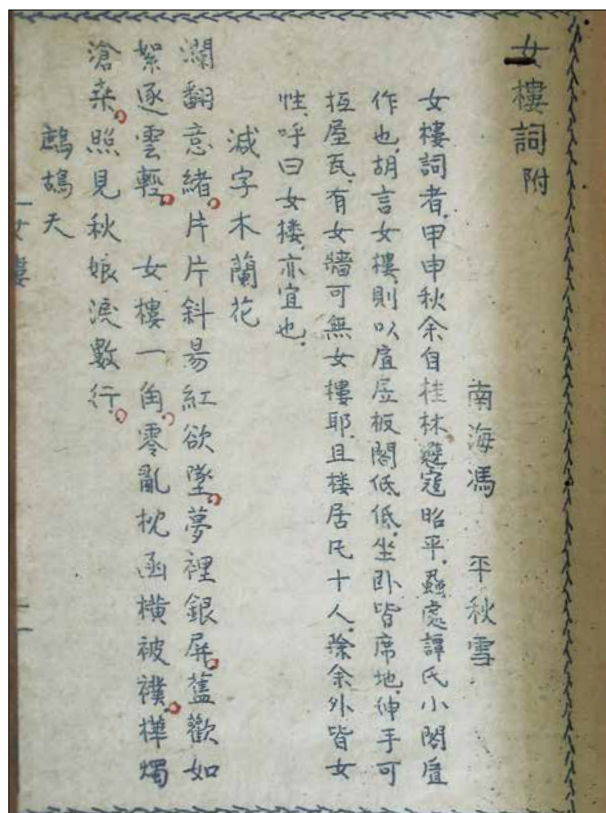 女樓詞附
南海馮 平秋雪
女樓詞者，甲申秋余自桂林避寇昭平，蝨處譚氏小閣虛
作也。胡言女樓，則以虛屋板閣低低，坐卧皆席地，伸手可
摭屋瓦，有女牆可無女樓耶。且楼居凡十人，除余外皆女
性，呼曰女楼，亦宜也。
減字木蘭花
瀾翻意緒。片片斜易紅欲墜。夢裡銀屏。舊歡如
絮逐雲輕。 女樓一角。零亂枕函橫被襆。樺燭
滄桑。照見秋娘淚數行。
鷓鴣天
女樓